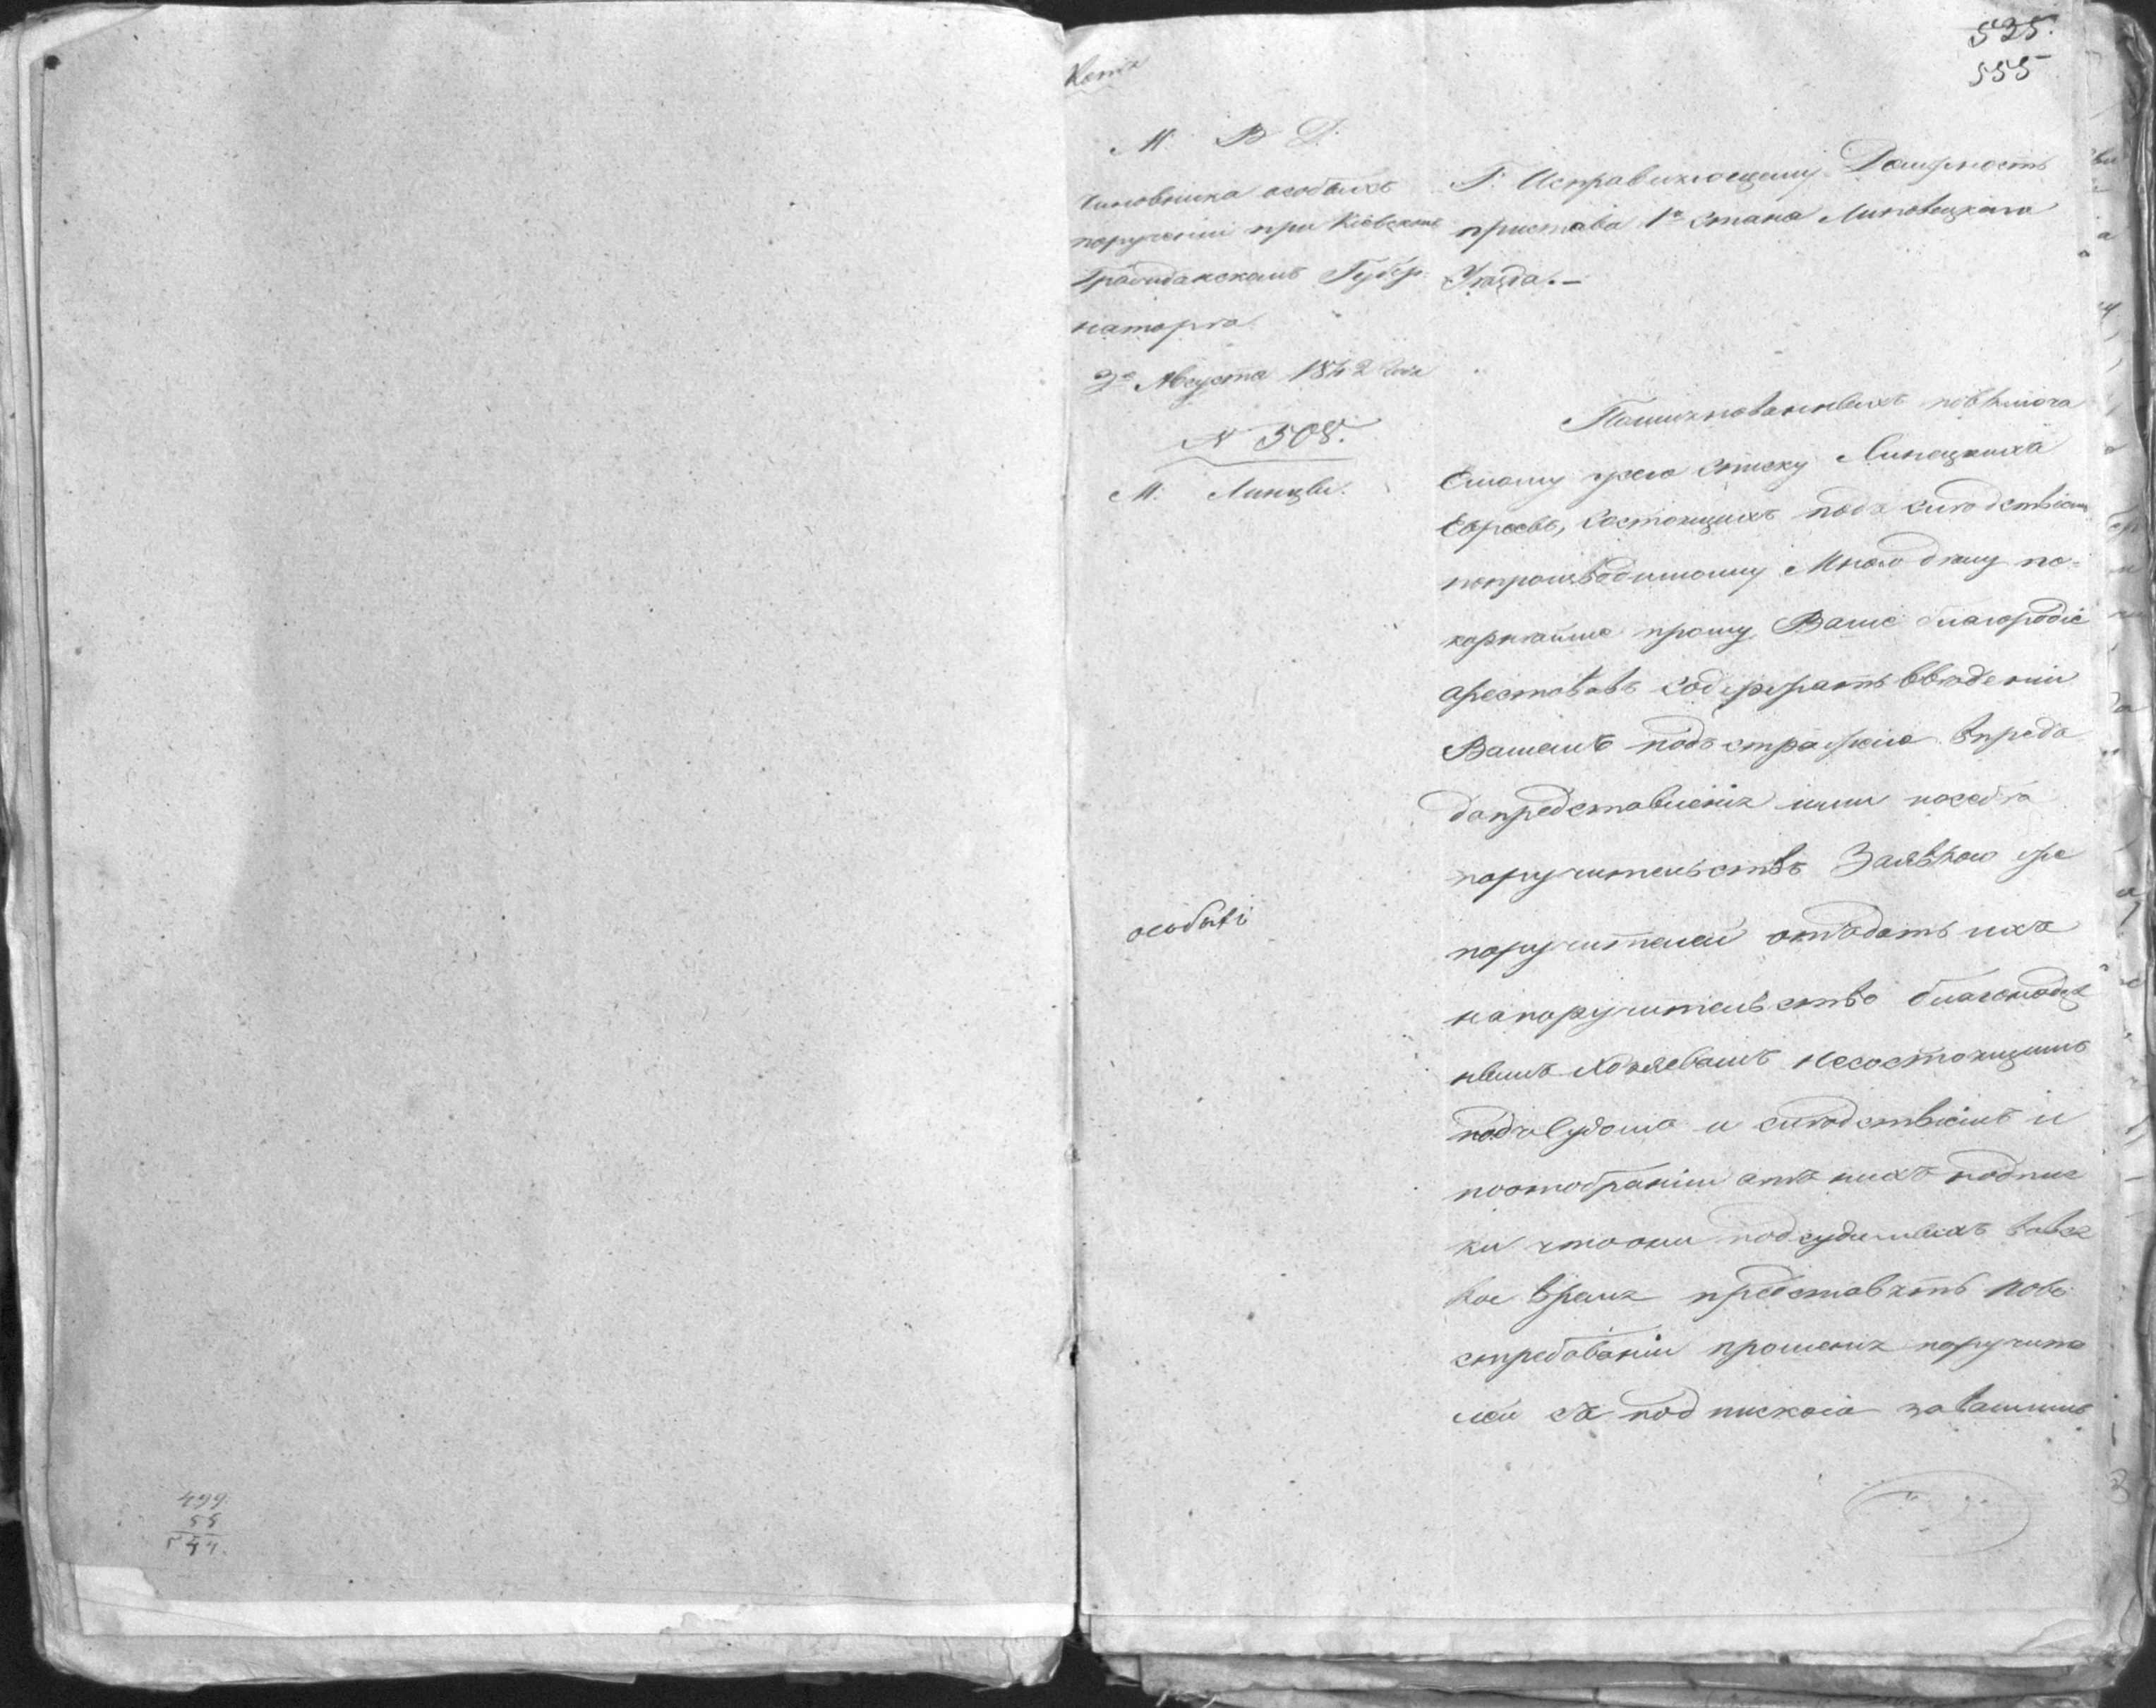 535.
555
Копія
М. В. Д.
Чиновника особыхъ
порученій при Кіевскомъ
Гражданскомъ Губер-
наторѣ
3го Августа 1842 года
№ 508.
М. Линцы.
Г. Исправляющему Должность
пристава 1го Стана Липовецкаго
Уѣзда.—
Поименованныхъ
Списку Линецкихъ
Евреевъ, Состоящихъ подъ слѣдствіемъ
попроизводимому Мною дѣлу по-
корнѣйше прошу Ваше благородіе
арестовавъ Содержать ввѣденіи
Вашемъ подъ стражею впредь
допредставленія ими посебѣ
поручительствъ Заявкою же
поручителей отдать ихъ
напоручительство благонадеж
нымъ Хозяевамъ несостоящимъ
подъ Судомъ и слѣдствіемъ и
поотобраніи отъ нихъ подпис
ки чтоони подсудимыхъ вовся
кое время представятъ
поручите
лей съ подпискою завашимъ
особыхъ
499
55
544.